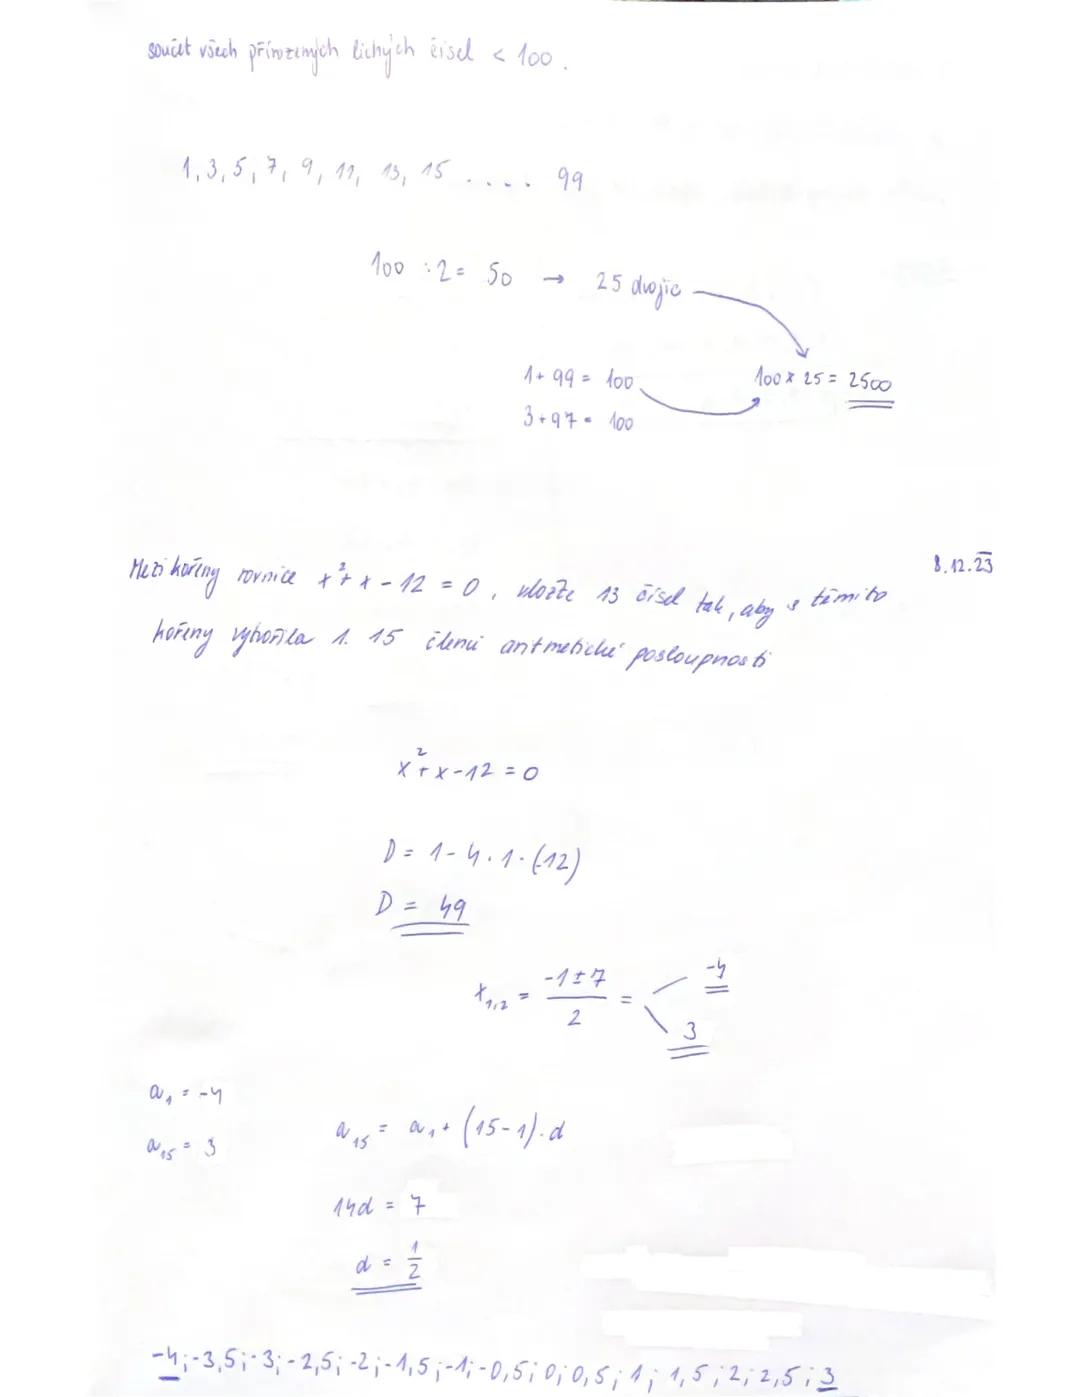 součet všech přirozených lichých čísel < 100.
1, 3, 5, 7, 9, 11, 13, 15 .... 99
100 : 2 = 50 → 25 dvojic
1 + 99 = 100
100 x 25 = 2500
3 + 97 = 100
8.12.23
Mezi kořeny rovnice x² + x - 12 = 0, vložte 13 čísel tak, aby s těmito
kořeny vytvořila 1. 15 členů aritmetické posloupnosti
x² + x - 12 = 0
D = 1 - 4 . 1 . (-12)
D = 49
x₁,₂ = (-1 ± 7)/2 = -4
3
a₁ = -4
a₁₅ = 3
a₁₅ = a₁ + (15 - 1) . d
14d = 7
d = 1/2
-4; -3,5; -3; -2,5; -2; -1,5; -1; -0,5; 0; 0,5; 1; 1,5; 2; 2,5; 3